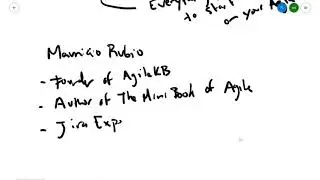 Every
to start
on your Agile
Mauricio Rubio
- Founder of AgileKB
- Author of The Mini Book of Agile
- Jira Exp